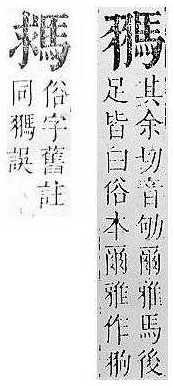 其余切音劬爾雅馬後
足皆白俗本爾雅作
俗字舊註
同誤